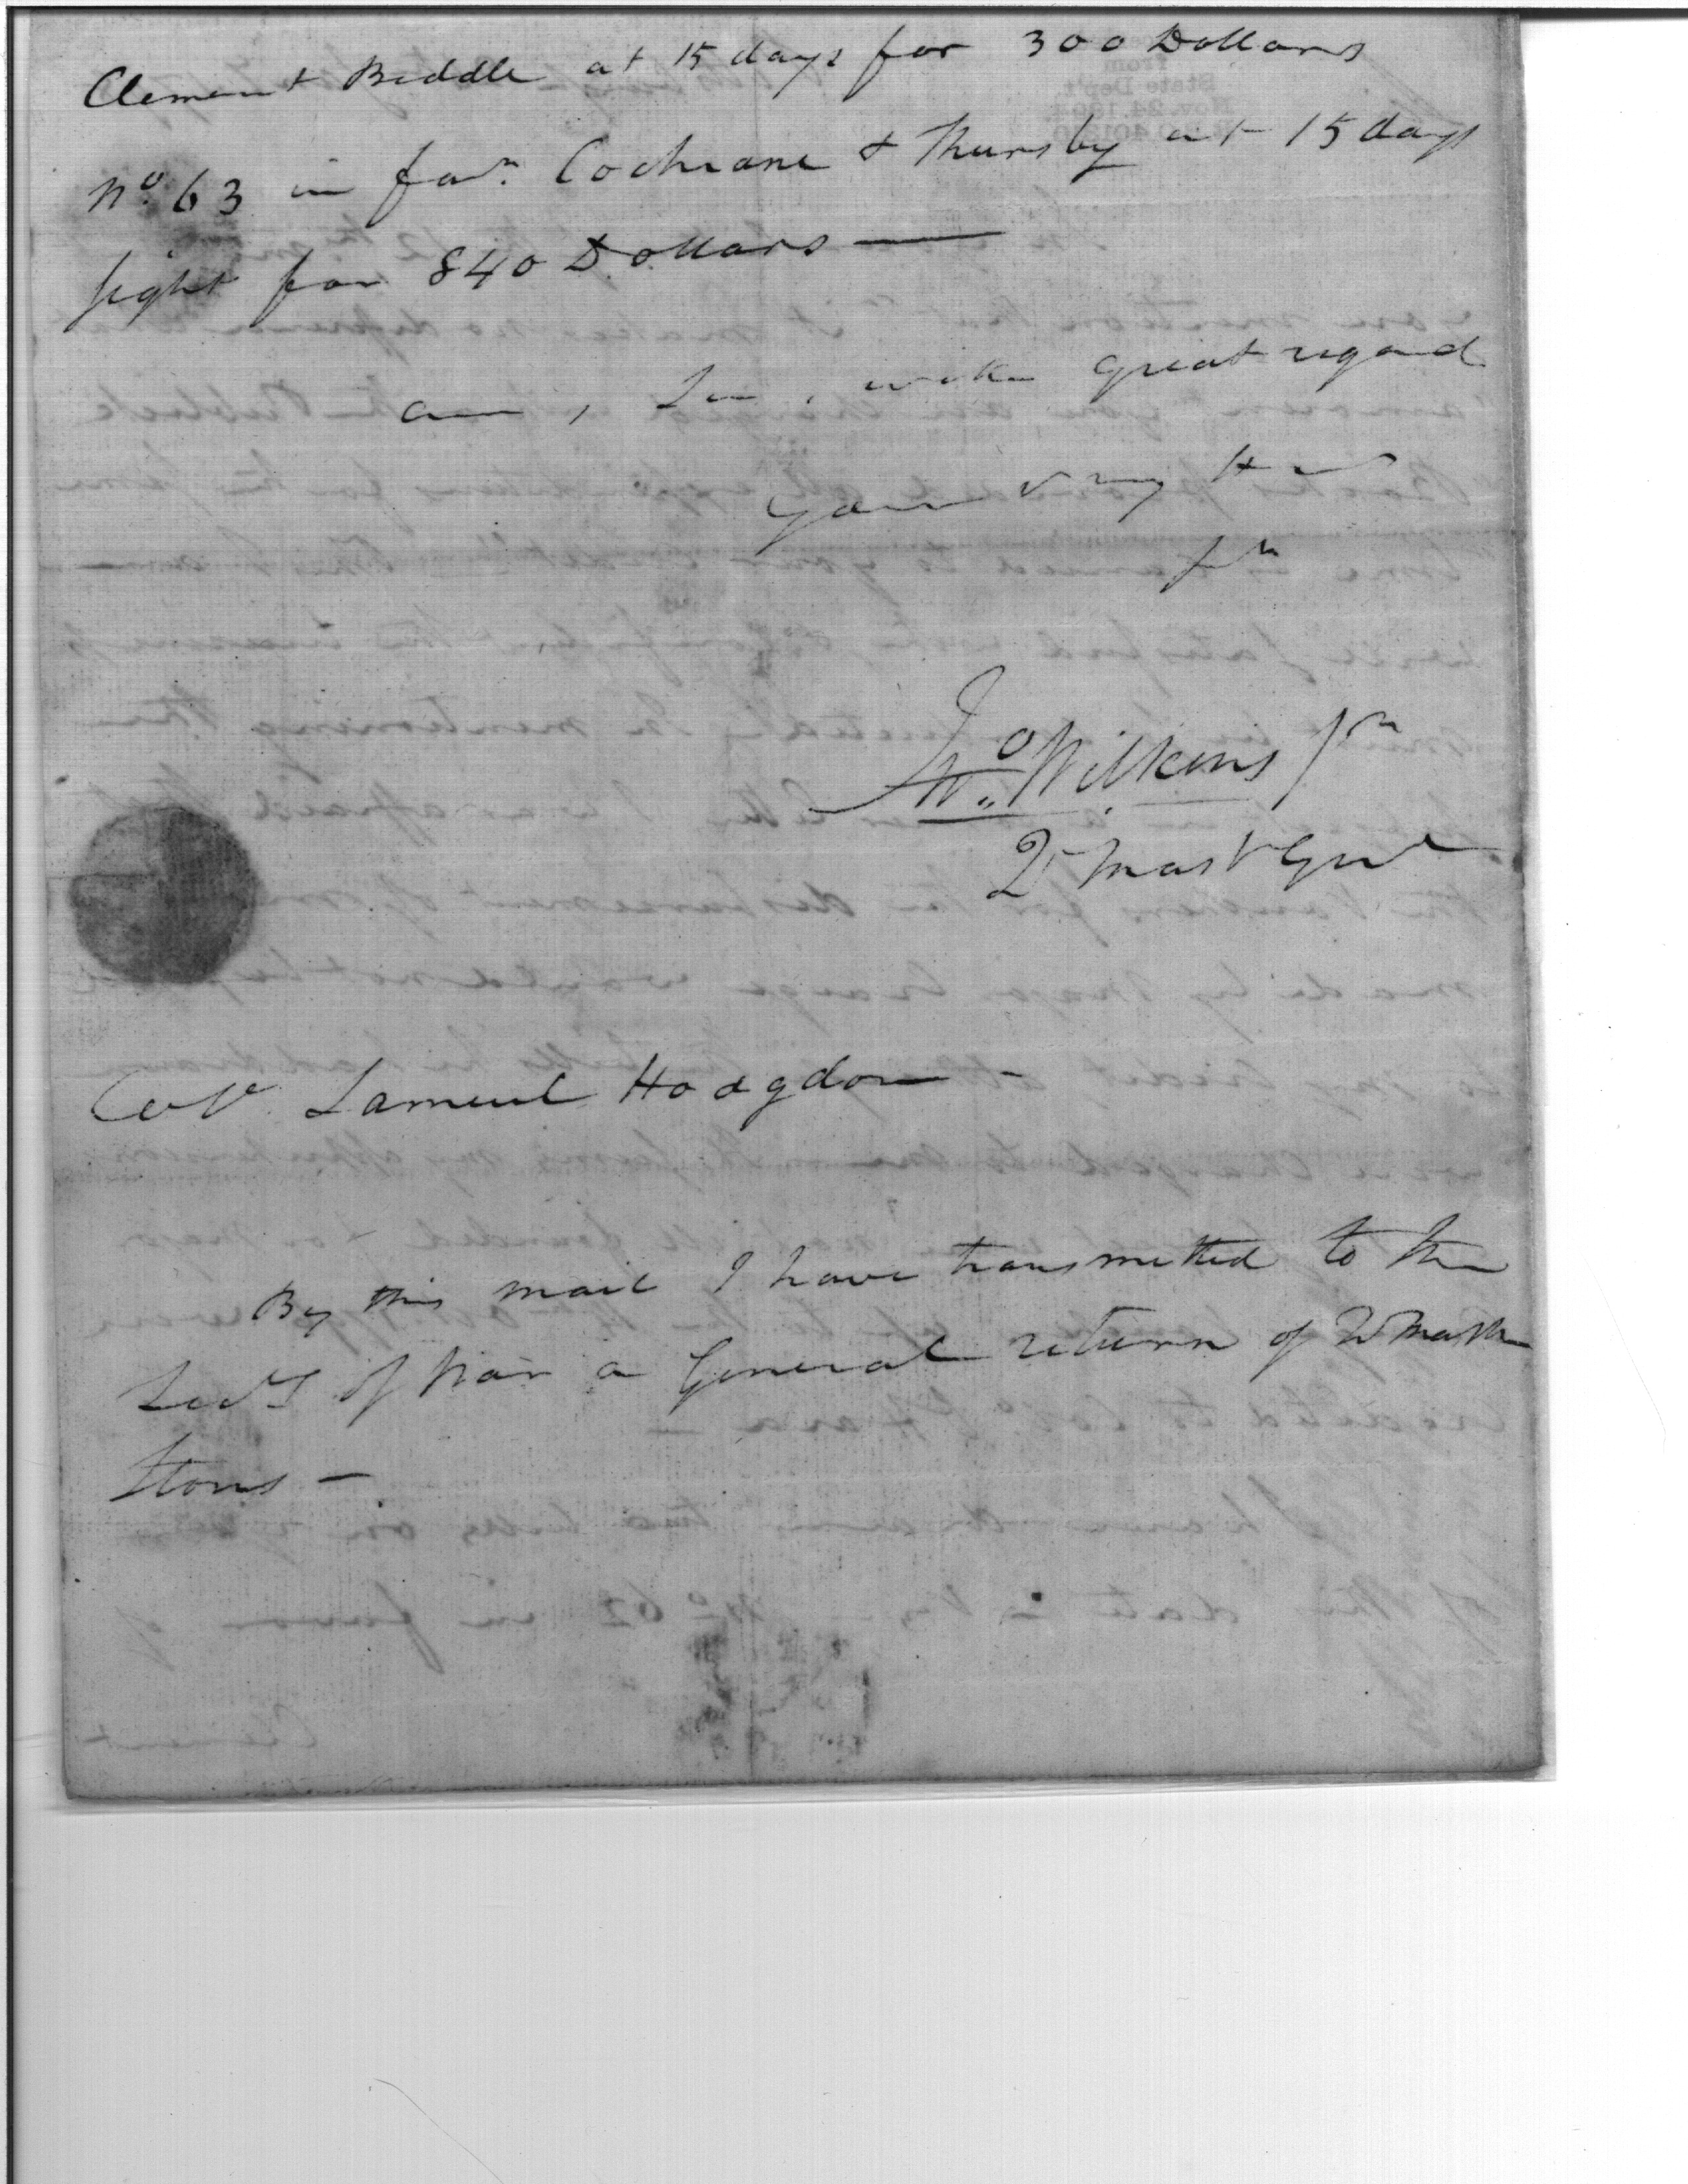 Clement Biddle at 15 days for 300 Dollars
No. 63 in favr. Cochrane & Thursby at 15 days
sight for 840 Dollars —
am, Sir, with great regard
your very Hu
Sr
Jno. Wilkins Jr
Qr Mastr Genl
Colo. Samuel Hodgdon -
By this mail I have transmitted to the
Secy of War a General return of Qr Master
Stores -